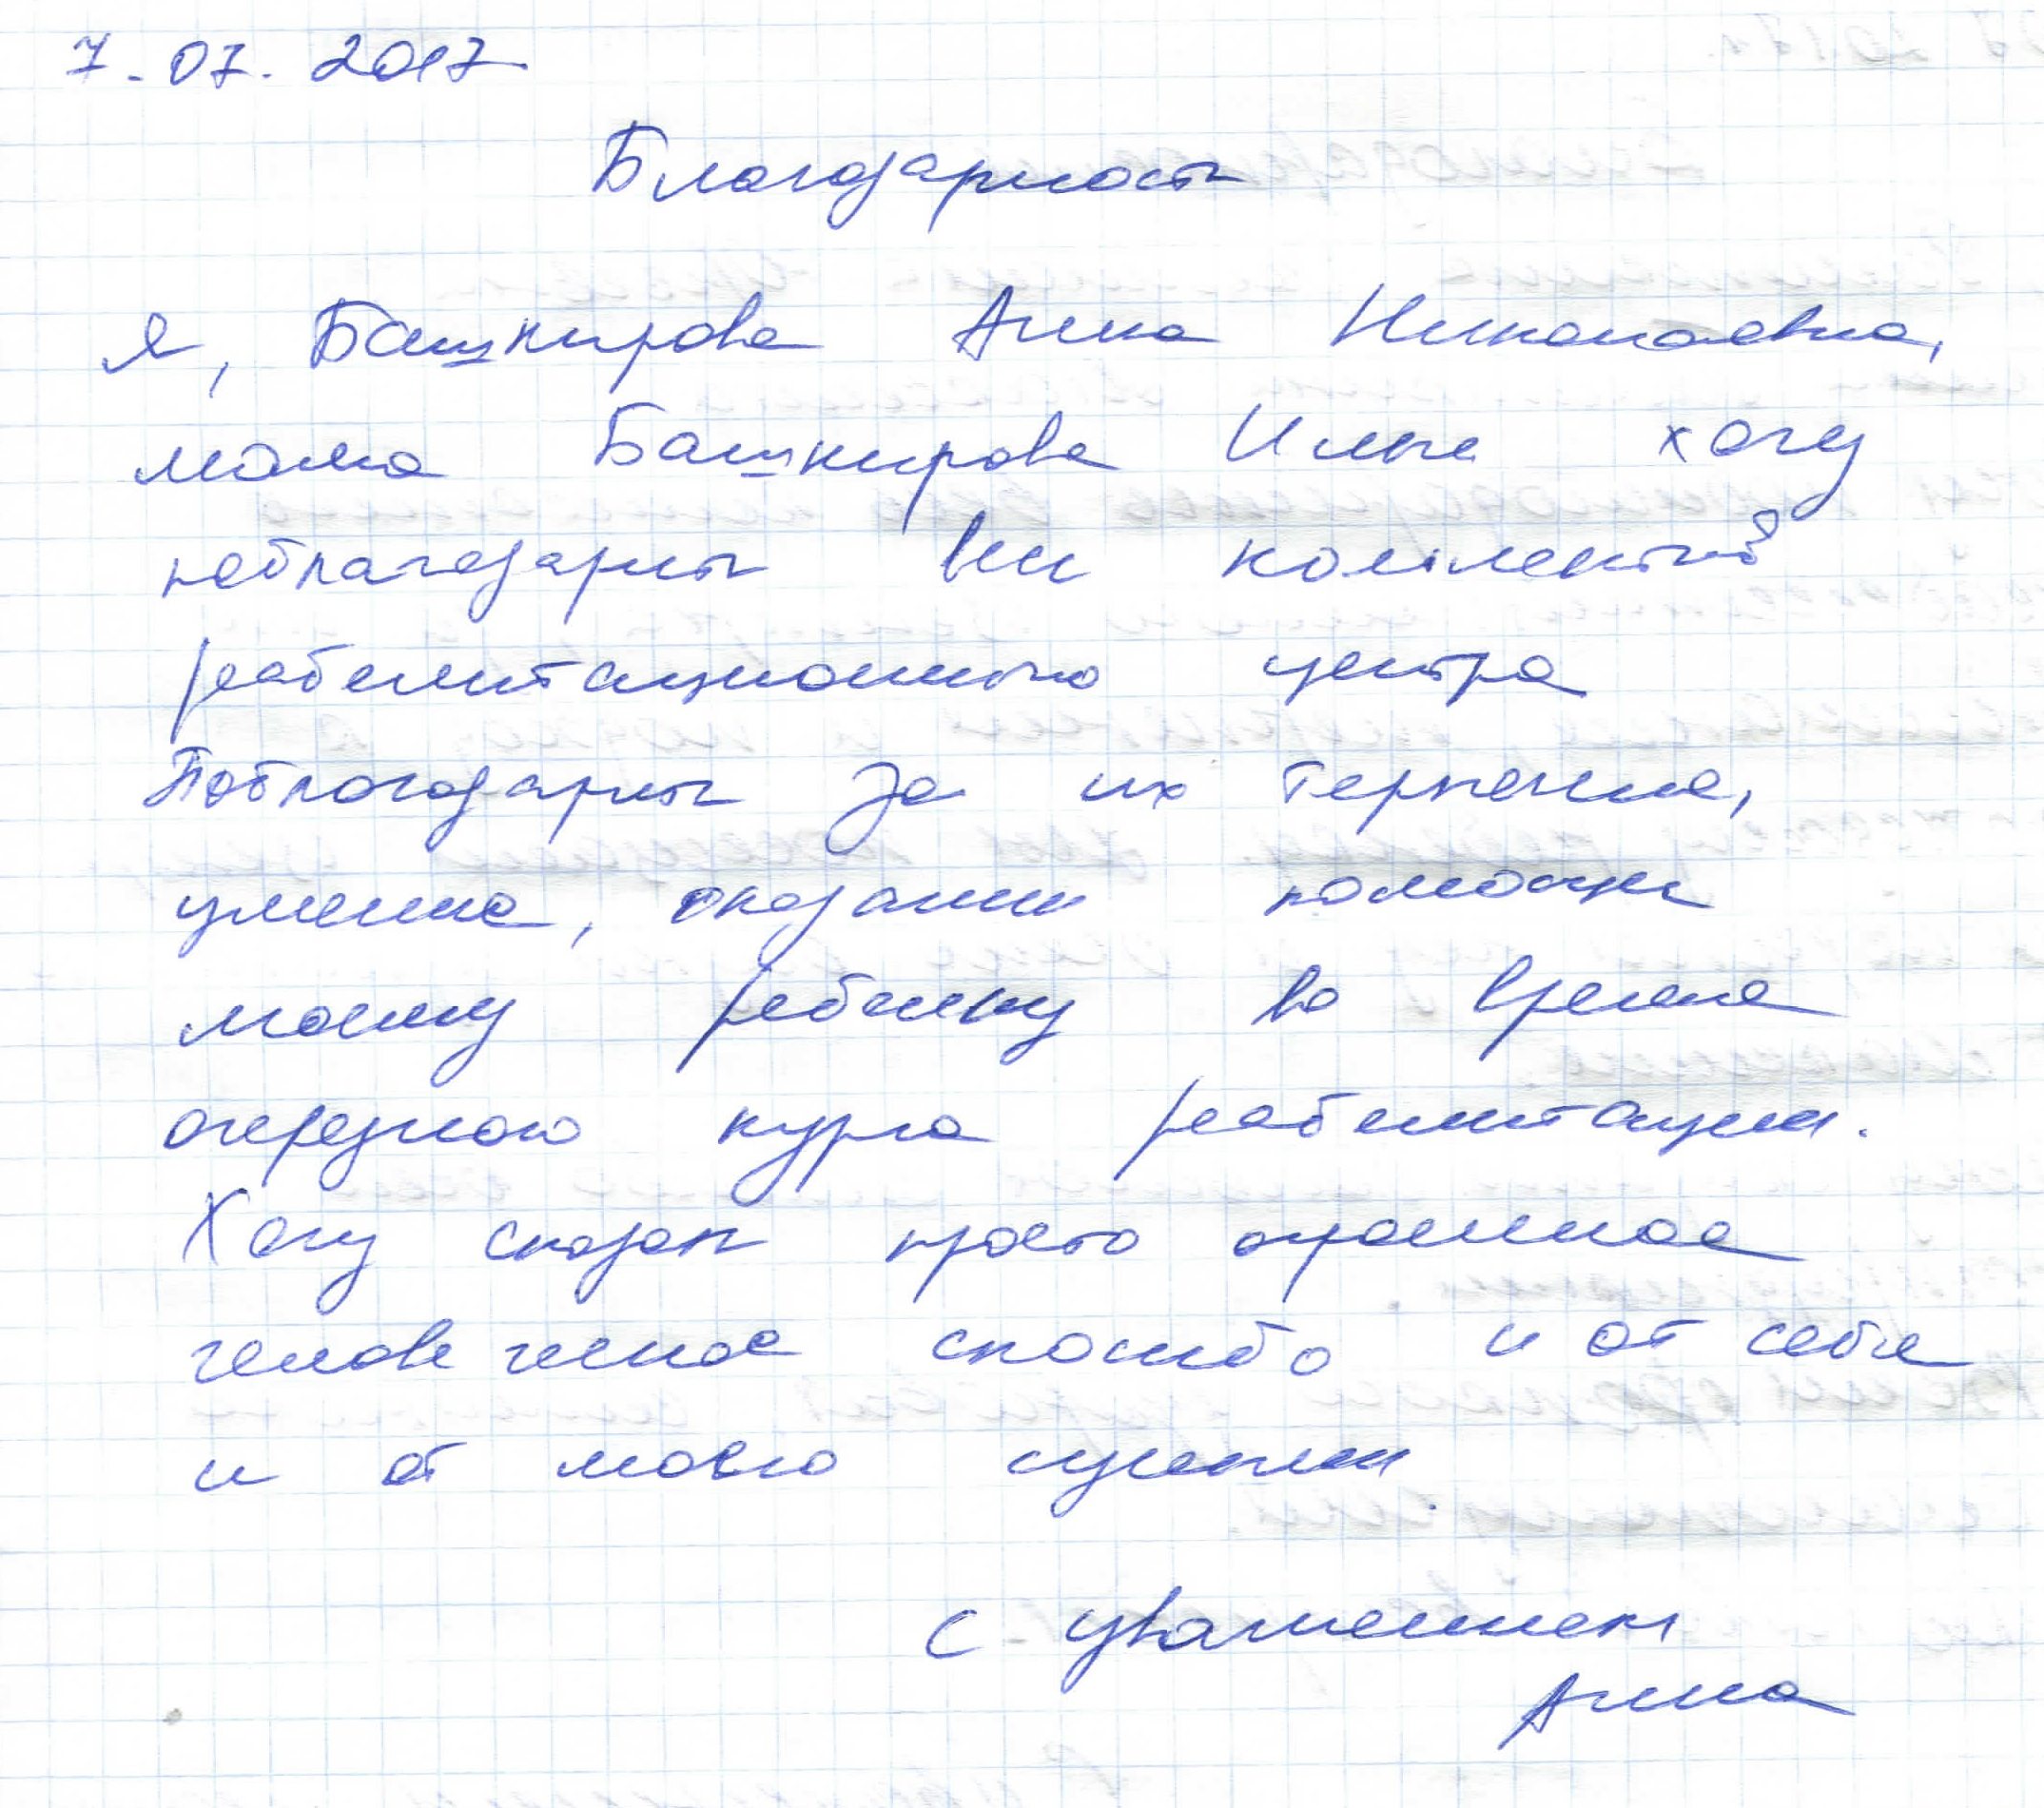 7.07.2017
Благодарность
Я, Башкирова Анна Николаевна,
мама Башкирова Ильи хочу
поблагодарить весь коллектив
реабилитационного центра
Поблагодарить за их терпение,
умение, оказании помощи
моему ребенку во время
очередного курса реабилитации.
Хочу сказать просто огромное
человеческое спасибо и от себя
и от моего супруга.
С уважением
Анна